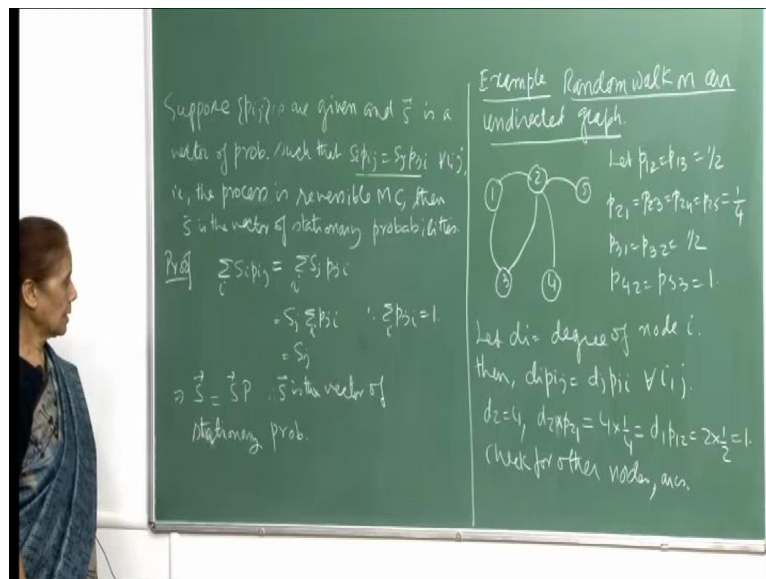 Suppose {pij}'s are given and s⃗ is a
vector of prob. such that sipij = sjpji ∀i,j,
ie, the process is reversible MC, then
s⃗ is the vector of stationary probabilities.
Proof Σi sipij = Σi sjpji
= sj Σi pji ∵ Σi pji = 1.
= sj
⇒ s⃗ = s⃗P ∴ s⃗ is the vector of
stationary prob.
Example Random walk on an
undirected graph.
1 2 5
3 4
Let p12 = p13 = 1/2
p21 = p23 = p24 = p25 = 1/4
p31 = p32 = 1/2
p42 = p53 = 1.
Let di = degree of node i.
then, dipij = djpji ∀i,j.
d2=4, d2×p21 = 4×1/4 = d1p12 = 2×1/2 = 1.
Check for other nodes, arcs.